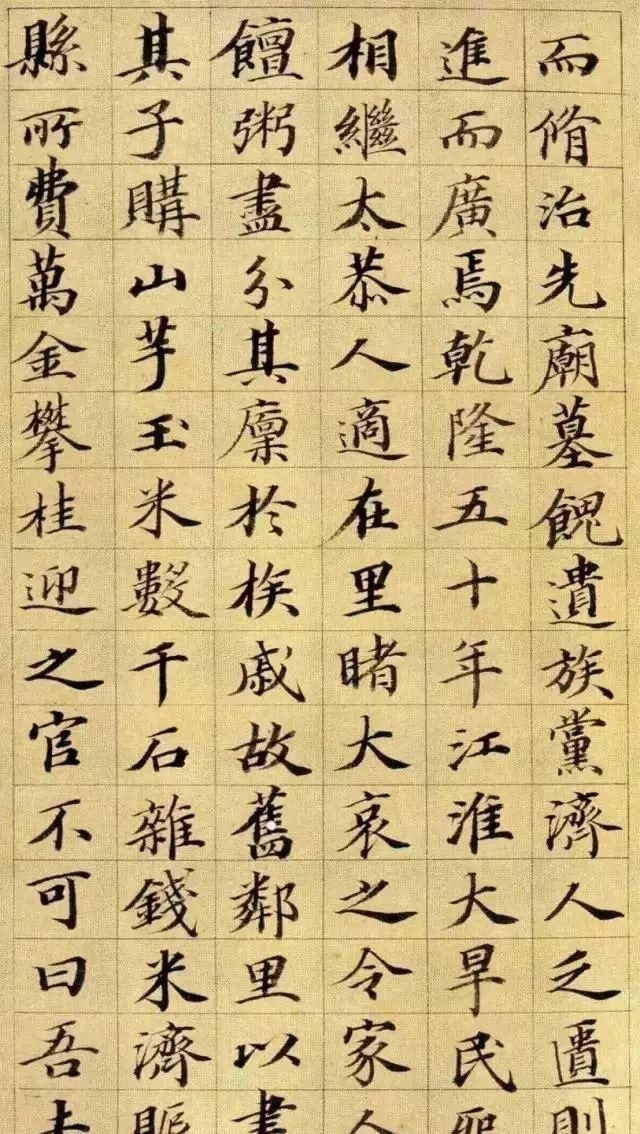 而脩治先廟墓餽遺族黨濟人乏匱則
進而廣焉乾隆五十年江淮大旱民
相繼太恭人適在里睹大哀之令家人
饘粥盡分其廩於族戚故舊鄰里以
其子購山芋玉米數千石雜錢米濟賑
縣所費萬金攀桂迎之官不可曰吾